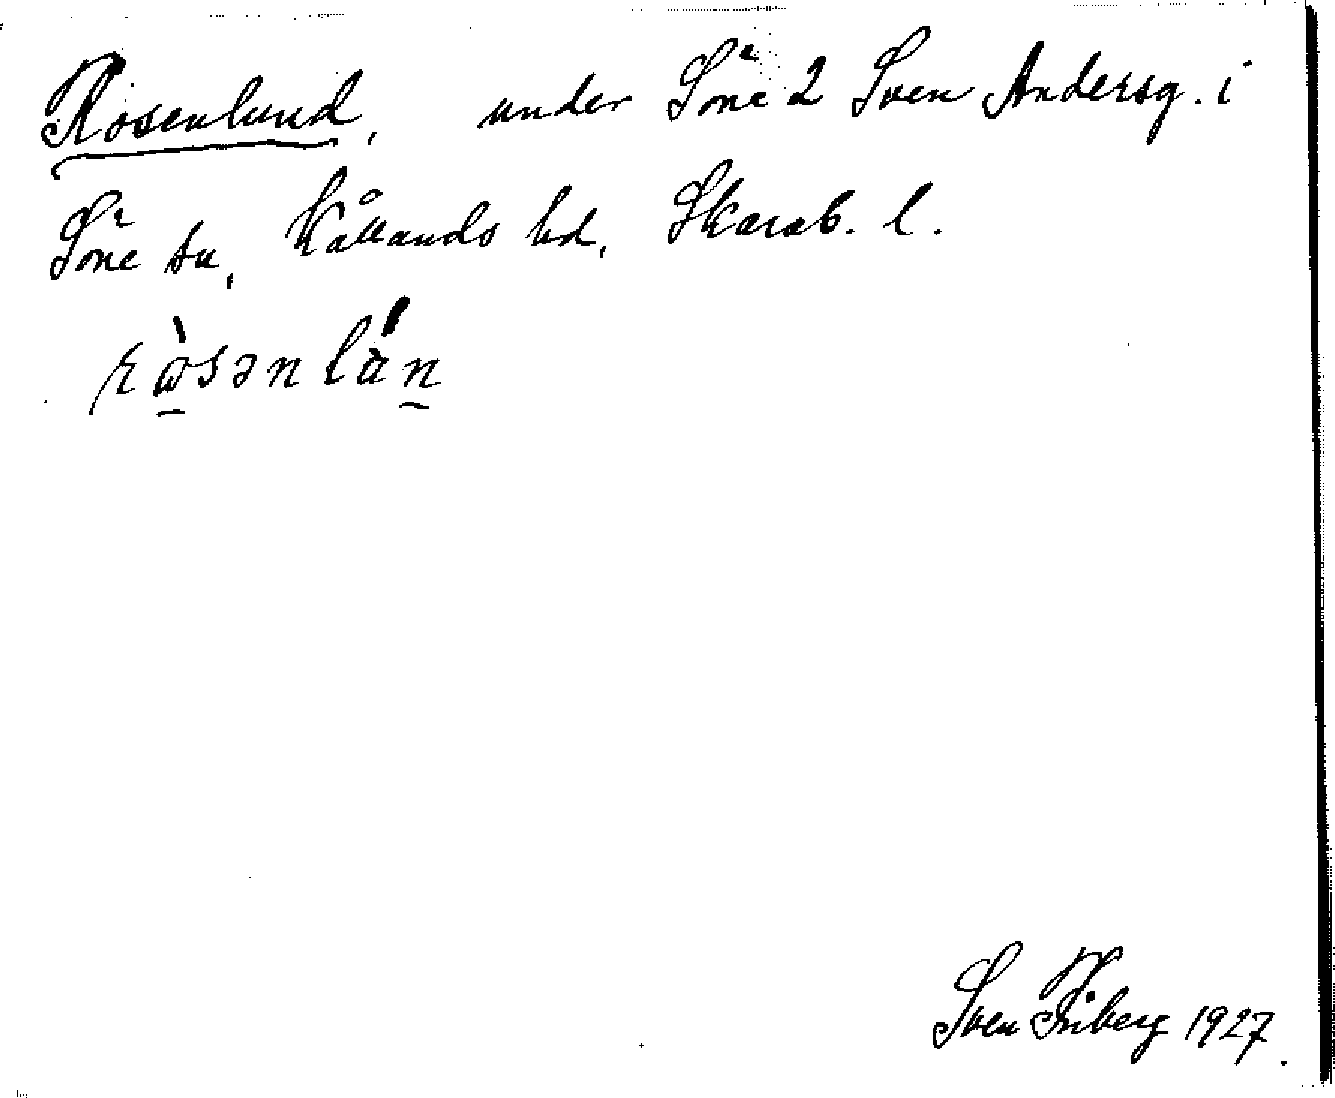 Rosenlund, under Söne 2 Sven Andersg. i
Söne sn, Kållands hd, Skarab. l.
Sven Friberg 1927.